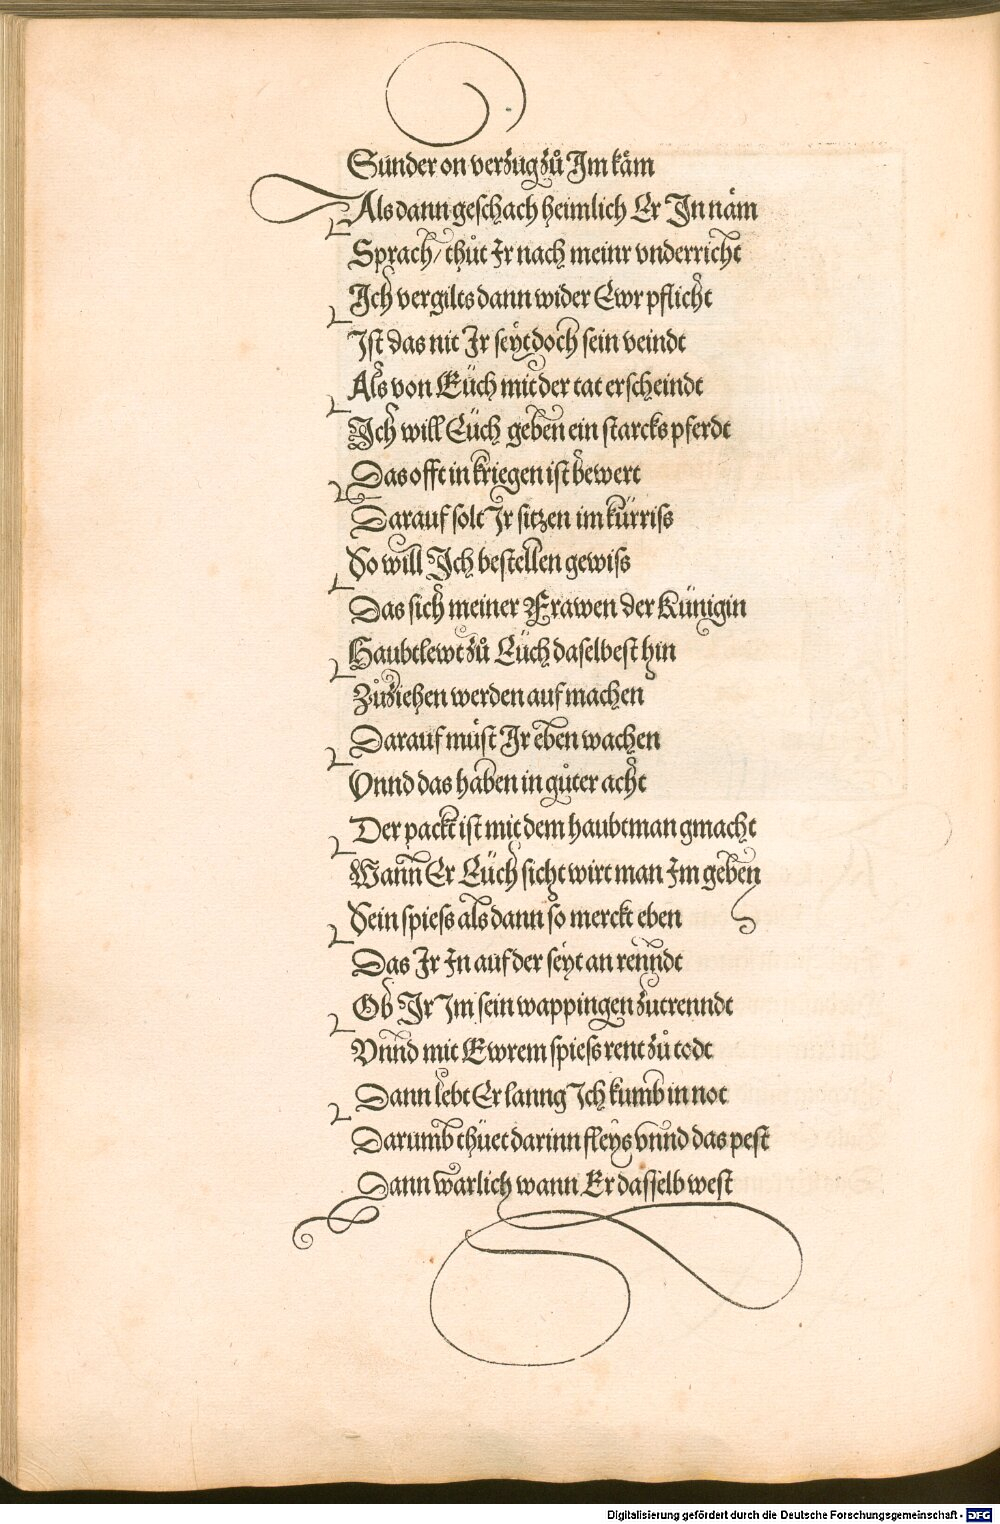 Sunder on verzug zů Im käm
Als dann geschach heimlich Er In näm
Sprach / thůt Ir nach meinr vnderricht
Ich vergilts dann wider Ewr pflicht
Ist das nit Ir seyt doch sein veindt
Als von Eüch mit der tat erscheindt
Ich will Eüch geben ein starcks pferdt
Das offt in kriegen ist bewert
Darauf solt Ir sitzen im kürriss
So will Ich bestellen gewiss
Das sich meiner Frawen der Künigin
Haubtlewt zů Eüch daselbest hin
Zůziehen werden auf machen
Darauf müst Ir eben wachen
Vnnd das haben in gůter acht
Der packt ist mit dem haubtman gmacht
Wann Er Eüch sicht wirt man Im geben
Sein spiess als dann so merckt eben
Das Ir In auf der seyt an renndt
Ob Ir Im sein wappingen zutrenndt
Vnnd mit Ewrem spiess rent zů todt
Dann lebt Er lanng Ich kumb in not
Darumb thüet darinn fleys vnnd das pest
Dann warlich wann Er dasselb west
Digitalisierung gefördert durch die Deutsche Forschungsgemeinschaft - DFG